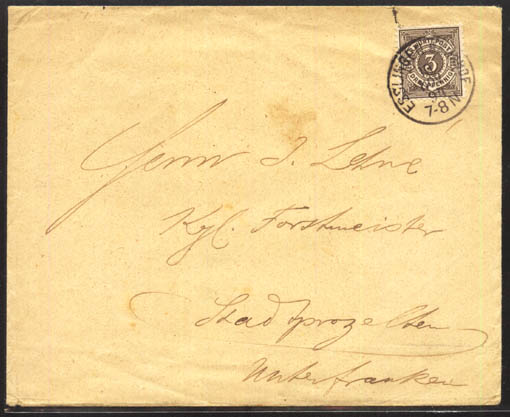 3
ESSLINGEN
7-8 N
Herrn J. Lehne
Kgl. Forstmeister
Stadtprozelten
Unterfranken